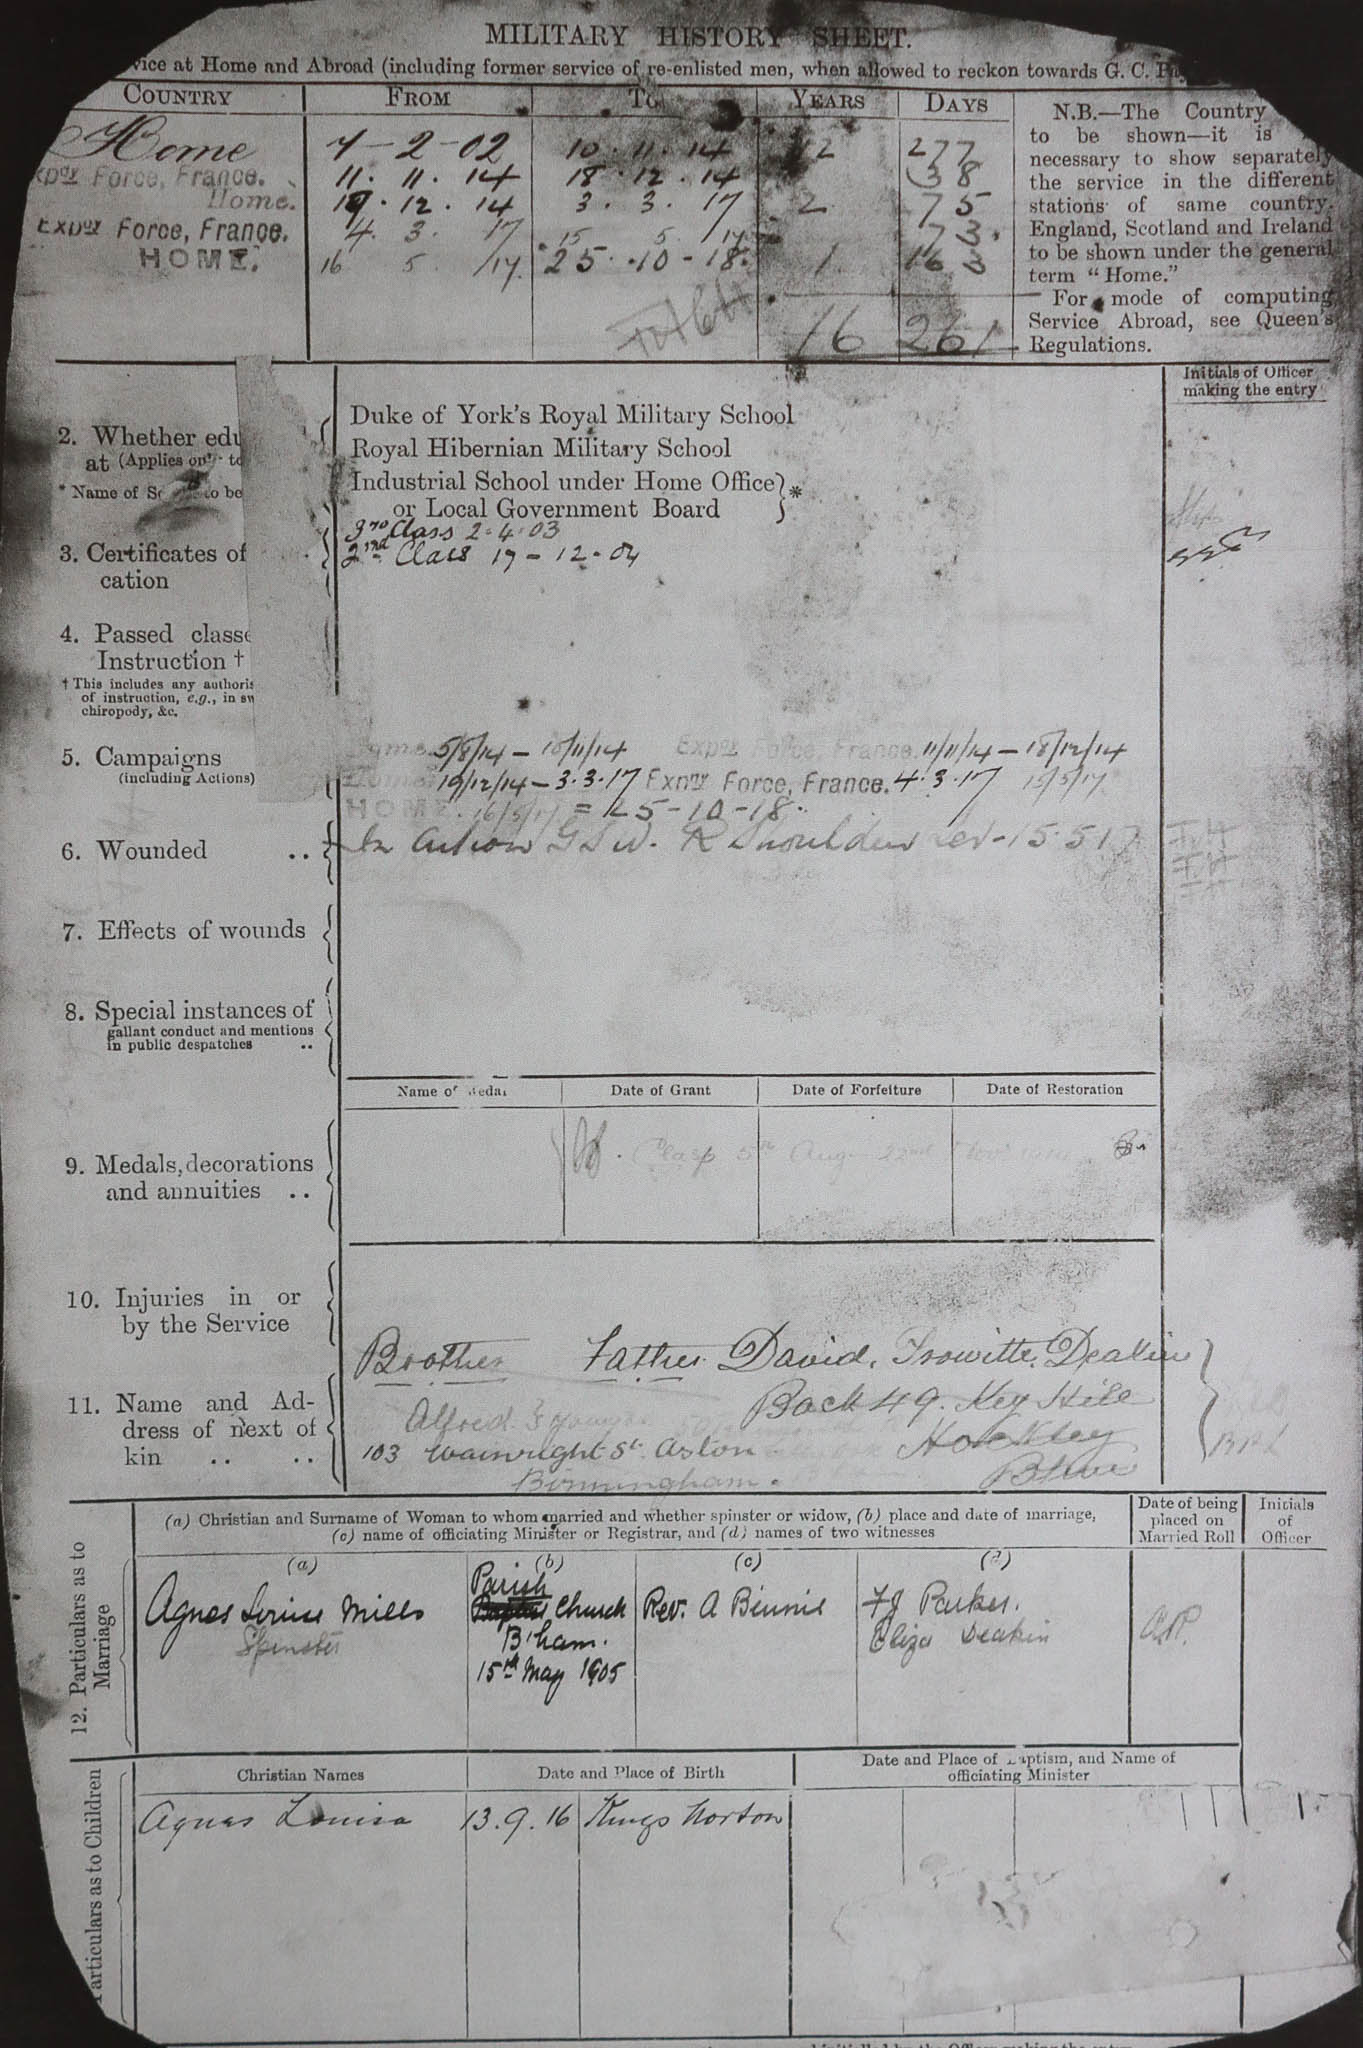 MILITARY HISTORY SHEET.
vice at Home and Abroad (including former service of re-enlisted men, when allowed to reckon towards G. C. Pa
COUNTRY FROM TO YEARS DAYS
Home 7-2-02 10.11.14 12 277
xpny Force, France. 11.11.14 18.12.14 38
Home. 19.12.14 3.3.17 2 75
Expny Force, France. 4.3.17 15 5 17 73.
HOME. 16 5 /17. 25.-10-18. 1 163
Total
16 261
N.B.—The Country
to be shown—it is
necessary to show separately
the service in the different
stations of same country.
England, Scotland and Ireland
to be shown under the general
term “Home.”
For mode of computing
Service Abroad, see Queen's
Regulations.
Initials of Officer
making the entry
2. Whether edu
at (Applies only to
* Name of Sc to be
Duke of York's Royal Military School
Royal Hibernian Military School
Industrial School under Home Office
or Local Government Board } *
3. Certificates of
cation
3rd Class 2.4.03
2nd Class 17-12-04
4. Passed classe
Instruction †
† This includes any authoris
of instruction, e.g., in sw
chiropody, &c.
5. Campaigns
(including Actions)
Home 5/8/14 - 10/11/14 Expny Force, France. 11/11/14 - 18/12/14
Home 19/12/14 - 3.3.17 Expny Force, France. 4.3.17 15/5/17
HOME. 16/5/17 = 25-10-18.
6. Wounded ..
In Action G.S.W. R Shoulder 15.5.17
7. Effects of wounds
8. Special instances of
gallant conduct and mentions
in public despatches ..
Name of Medal Date of Grant Date of Forfeiture Date of Restoration
9. Medals, decorations
and annuities ..
Clasp 5th Aug - 22nd Nov
10. Injuries in or
by the Service
11. Name and Ad-
dress of next of
kin .. ..
Brother Father David, Trowitte, Deakin
Back 49. Key Hill
Alfred
103 Wainwright St. Aston Hockley
Birmingham.
12. Particulars as to
Marriage
(a) Christian and Surname of Woman to whom married and whether spinster or widow, (b) place and date of marriage,
(c) name of officiating Minister or Registrar, and (d) names of two witnesses
Date of being
placed on
Married Roll
Initials
of
Officer
(a) (b) (c) (d)
Agnes Louise Mills
Spinster
Parish
Baptist Church
B'ham.
15th May 1905
Rev. A Binnie
F J Parker.
Eliza Deakin
articulars as to Children
Christian Names Date and Place of Birth
Date and Place of Baptism, and Name of
officiating Minister
Agnes Louisa 13.9.16 Kings Norton